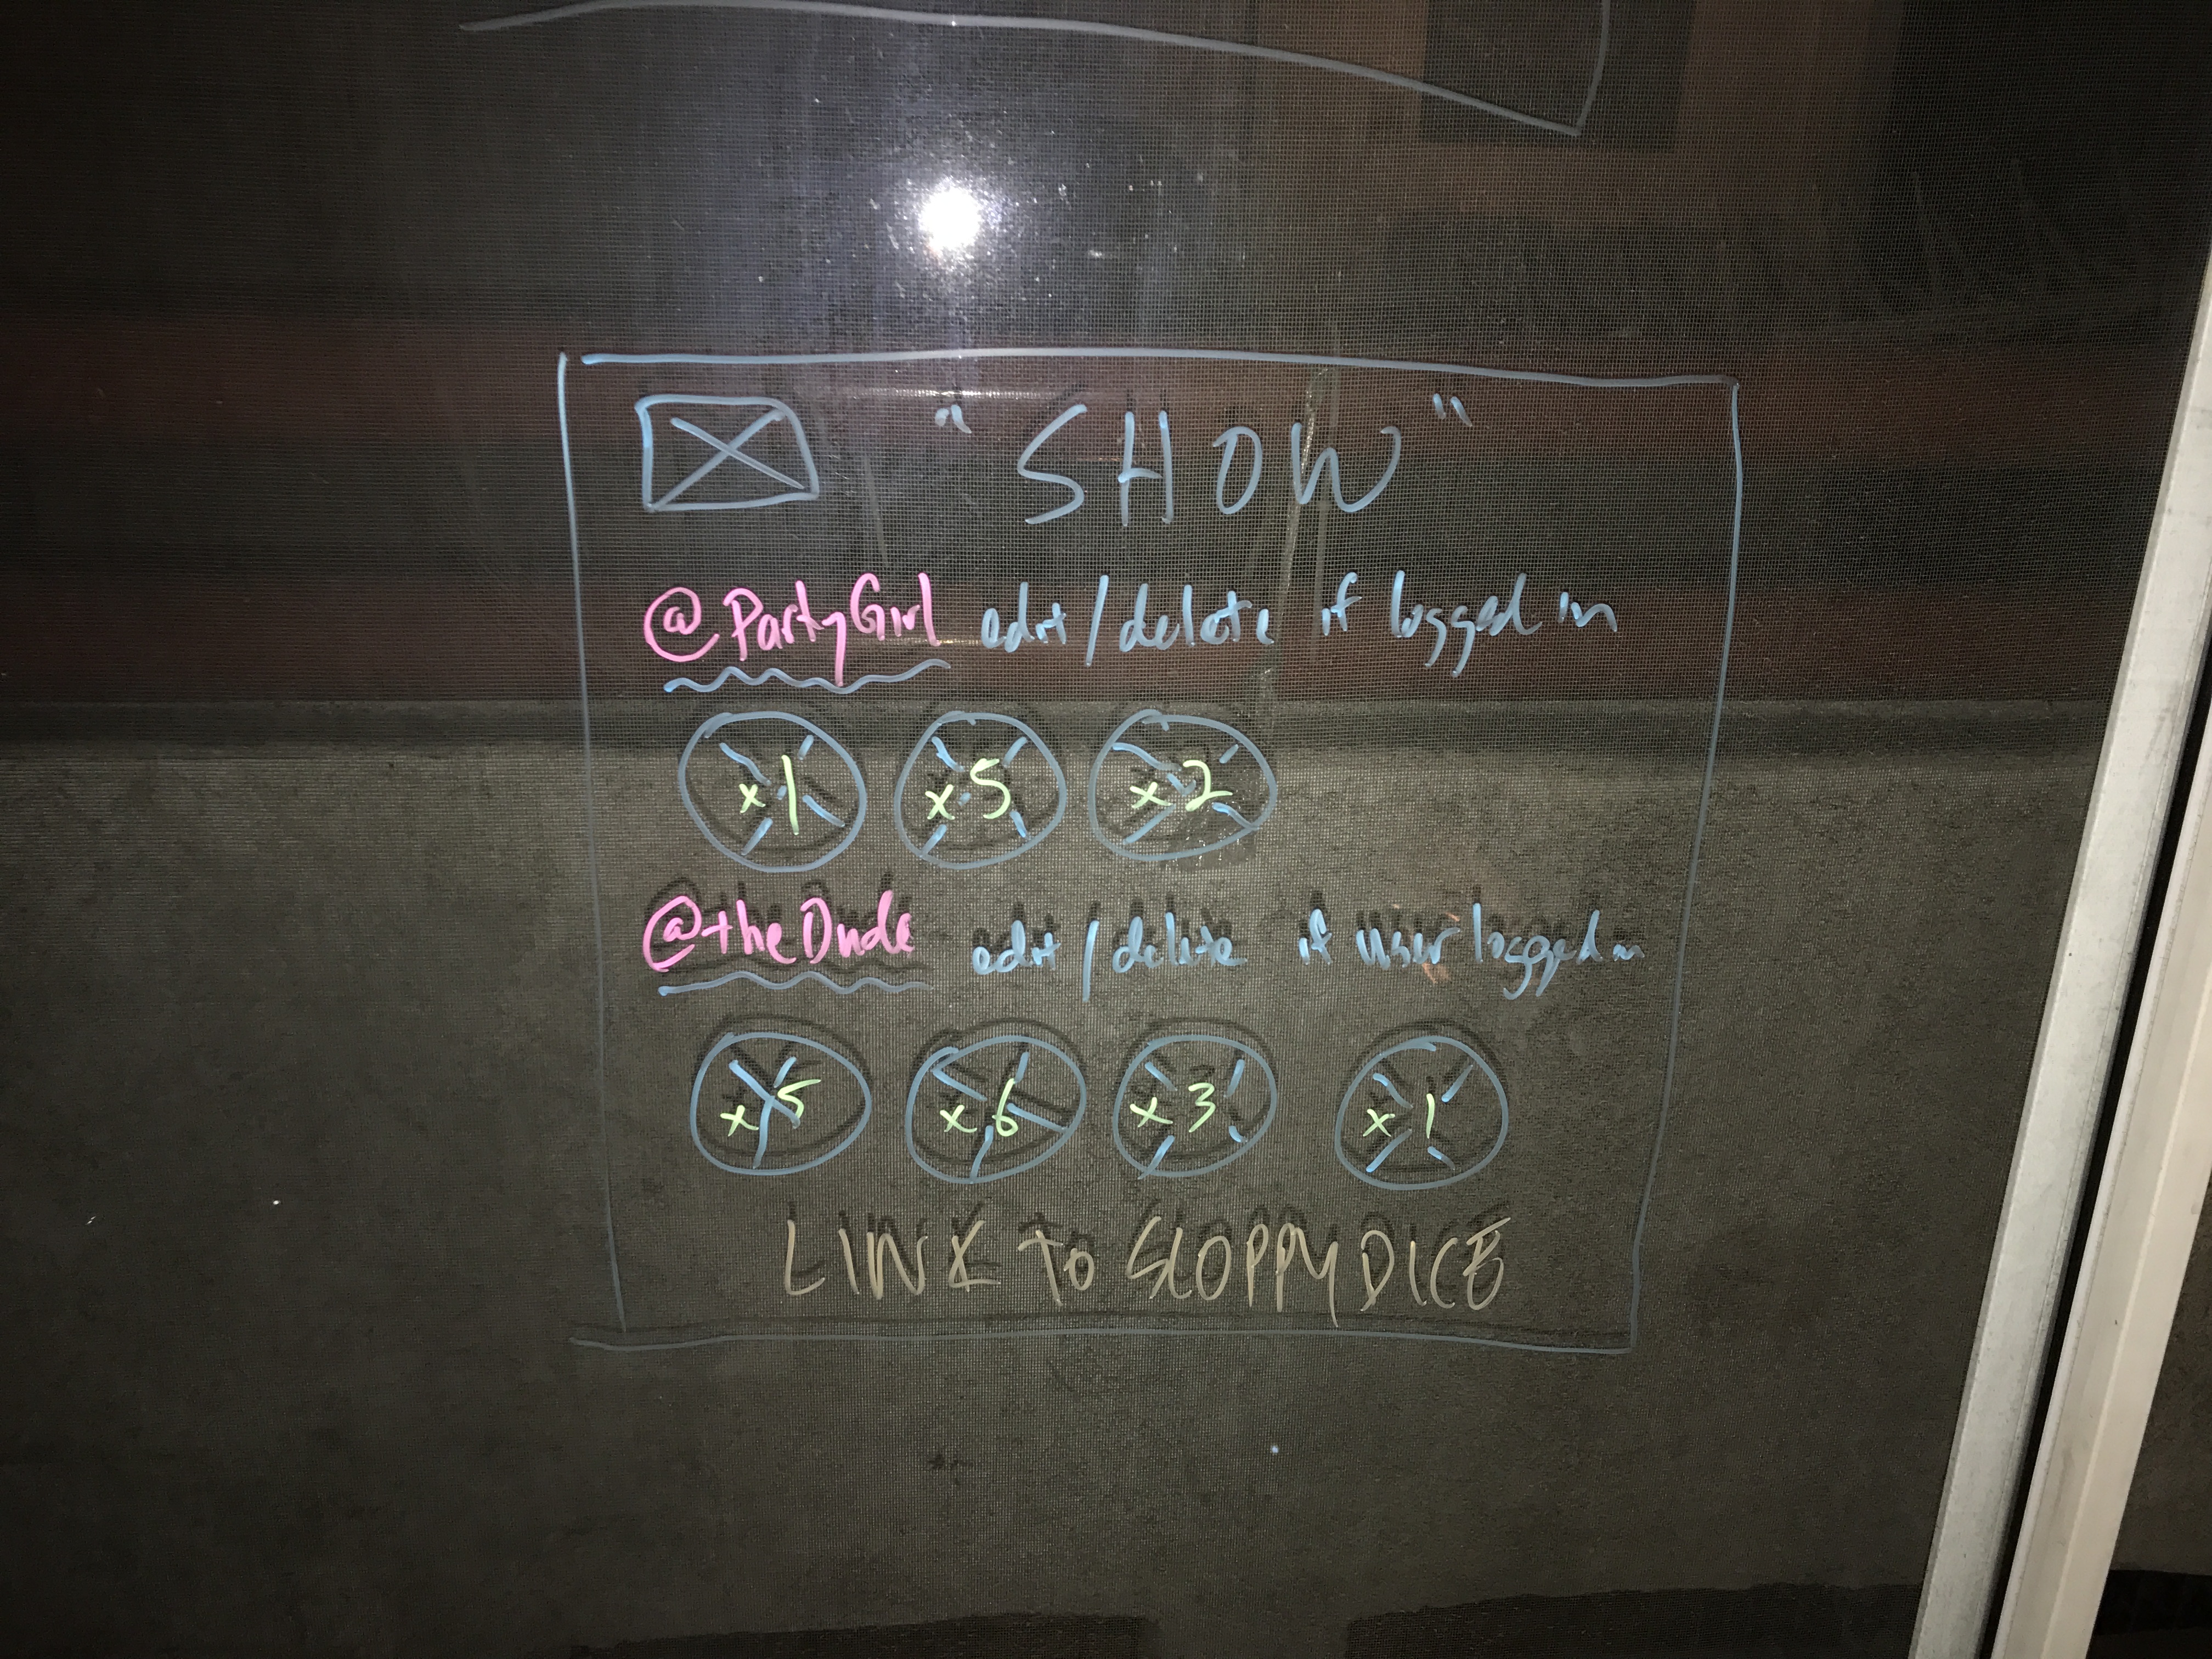 "SHOW"
@PartyGirl edit/delete if logged in
x1 x5 x2
@theDude edit/delete if user logged in
x5 x6 x3 x1
LINK TO SLOPPYDICE